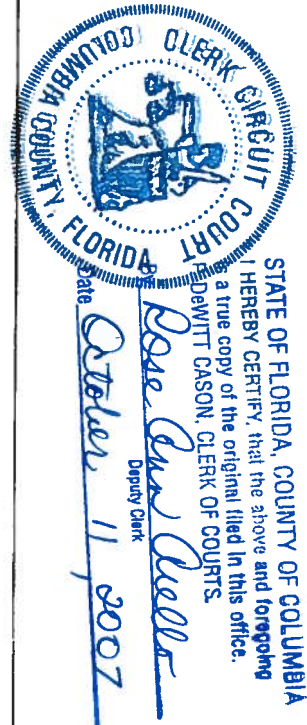 CLERK CIRCUIT COURT
COLUMBIA COUNTY, FLORIDA
STATE OF FLORIDA, COUNTY OF COLUMBIA
I HEREBY CERTIFY, that the above and foregoing
a true copy of the original filed in this office.
DeWITT CASON, CLERK OF COURTS.
Rose Ann
Deputy Clerk
Date October 11, 2007